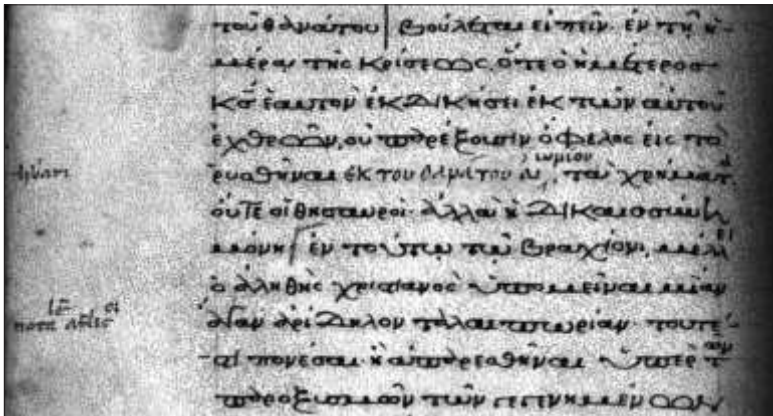 τοῦ θανάτου βούλεται εἰπεῖν· ἐν τῇ ἡ-
μέρα τῆς κρίσεως, ὅτε ὁ ἡμέτερος
κς ἑαυτὸν ἐκδικήσει ἐκ τῶν αὐτοῦ
ἐχθρῶν, οὐ παρέξουσιν ὄφελος εἰς τὸ
ῥυσθῆναι ἐκ του θανάτου αἰωνίου, τὰ χρήματ
οὔτε οἱ θησαυροὶ ἀλλὰ ἡ δικαιοσύνη
μόνη ἐν τούτῳ τῷ βραχίονι,
ὁ ἀληθὴς χριστιανὸς ὑπομεῖναι μίαν
λίαν ἀρίδηλον ταλαιπωρίαν· τουτέ-
στι πονέσαι ἢ ὑπὲρ τῶν
παροξισμῶν τῶν